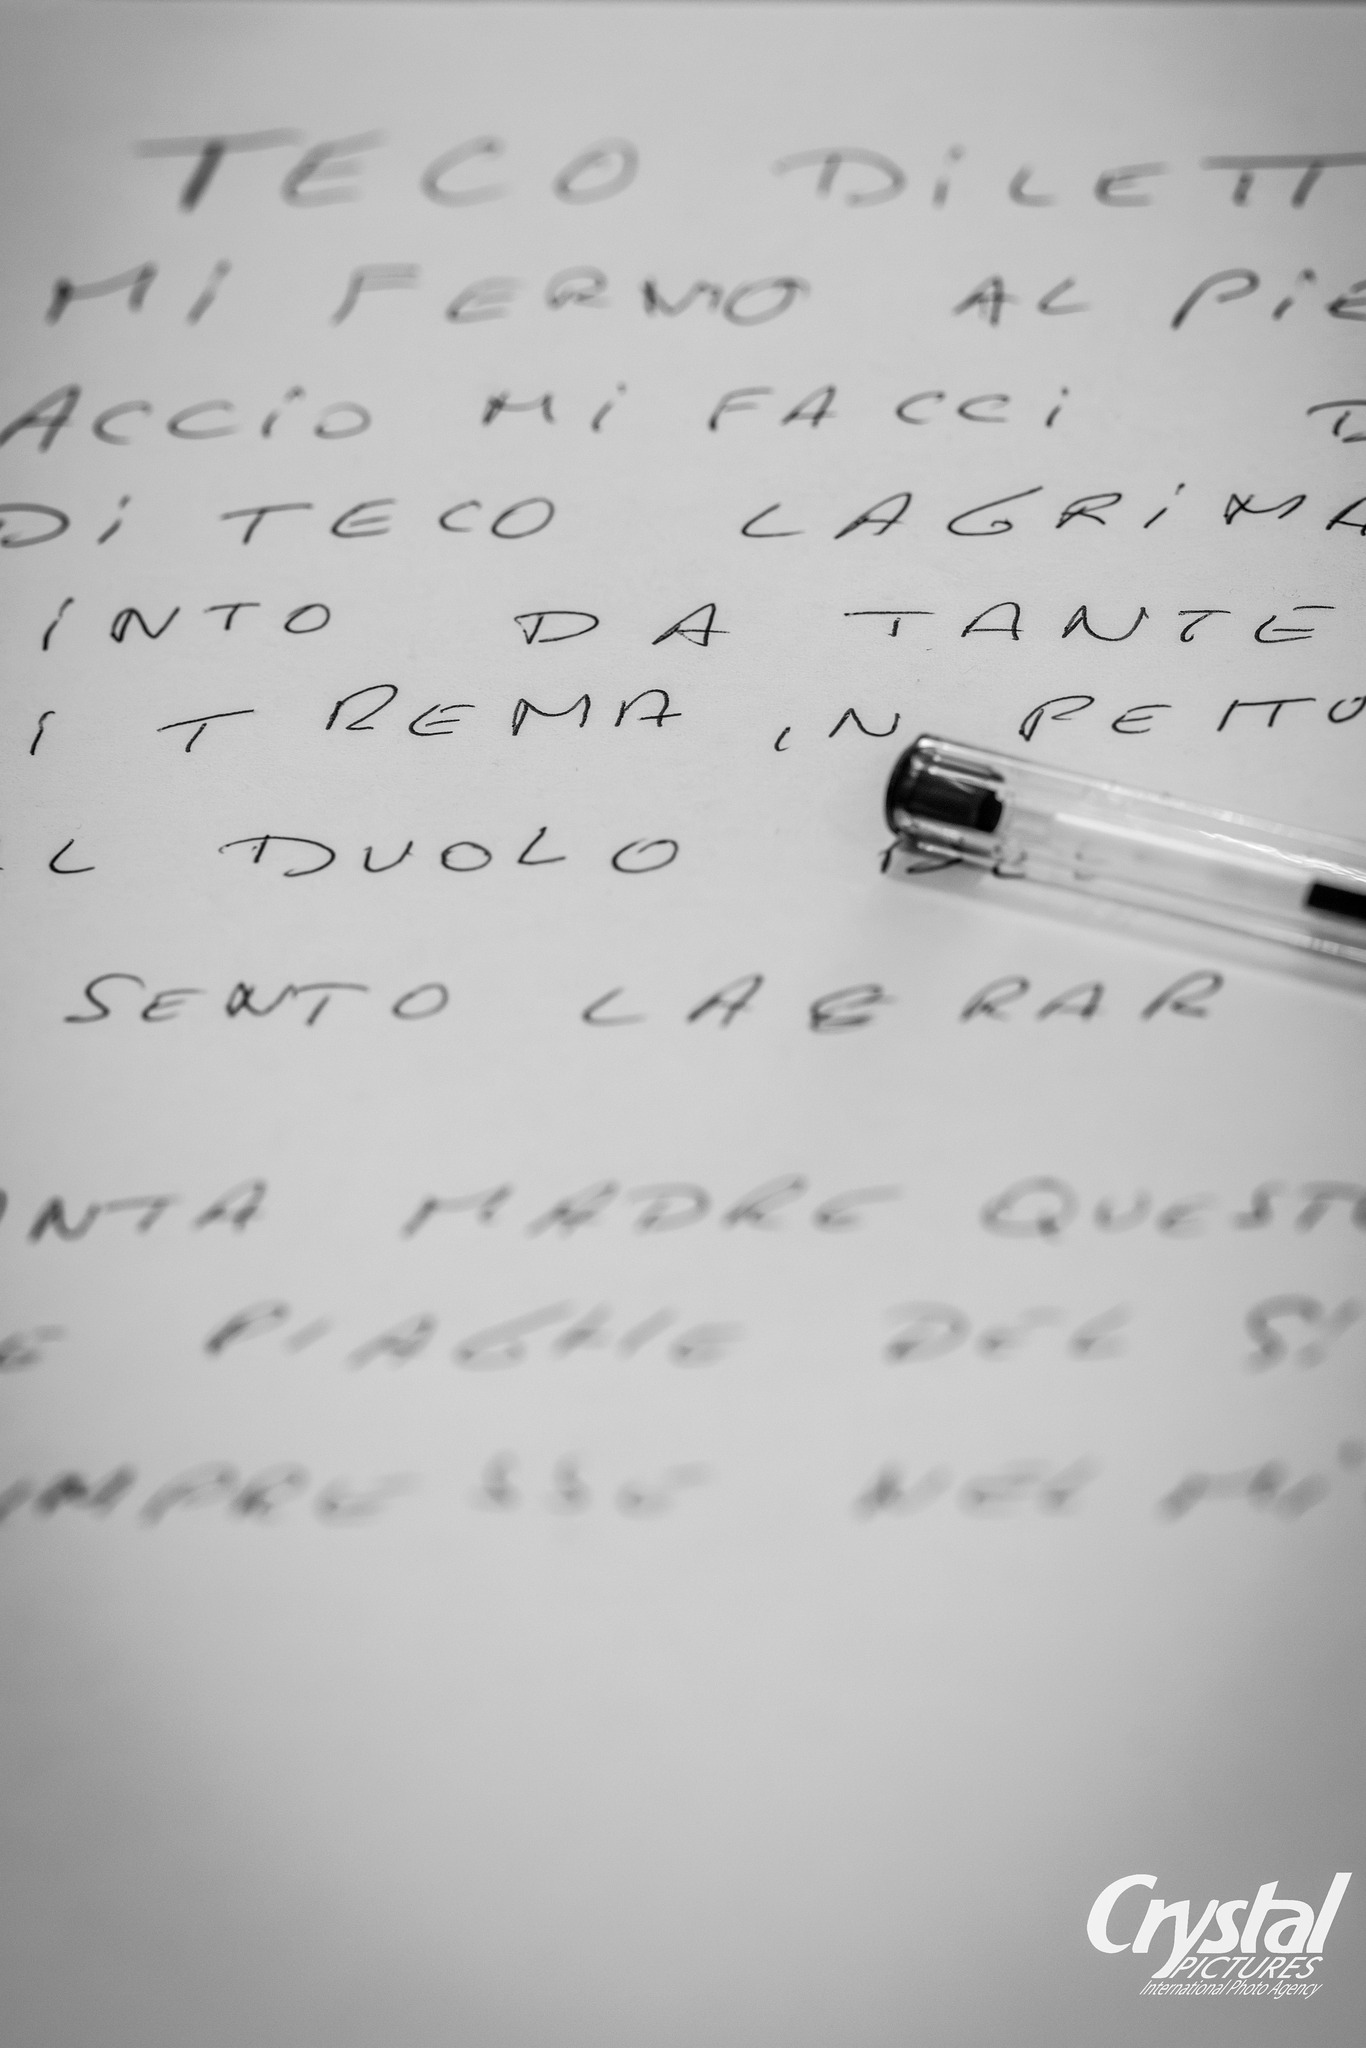 TECO DiLETT
Mi FERMO AL PiE
ACCiO Mi FACCi D
Di TECO LAGRiMA
iNTO DA TANTE
i TREMA iN PETTO
L DUOLO DEL
SENTO LACRAR
NTA MADRE QUESTO
E PIAGHE DEL SI
IMPRESSE NEL Mi
Crystal
PICTURES
International Photo Agency